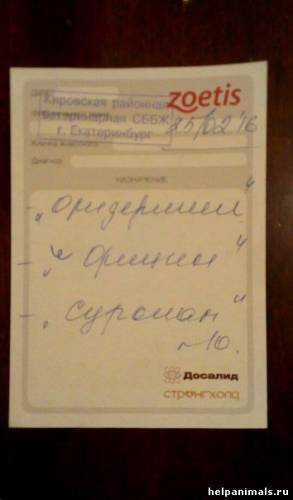 Кировская районная
ветеринарная СББЖ
г. Екатеринбург
zoetis
25/02 16
Кличка животного
Диагноз
НАЗНАЧЕНИЕ
- „Оридермил"
- „
- „Суролан"
№10.
Досалид
стронгхолд
helpanimals.ru